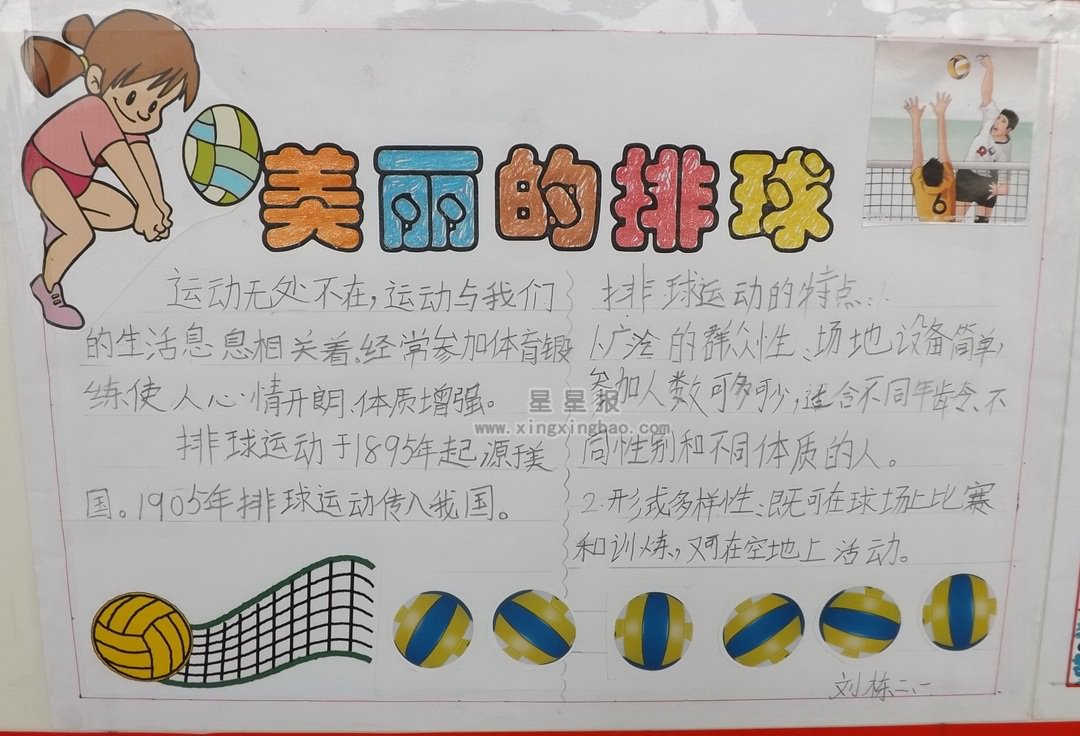 美丽的排球
运动无处不在，运动与我们
的生活息息相关着。经常参加体育锻
练、使人心情开朗、体质增强。
排球运动于1895年起源于美
国。1905年排球运动传入我国。
排球运动的特点：
1、广泛的群众性、场地设备简单，
参加人数可多可少，适合不同年龄、不
同性别和不同体质的人。
2、形式多样性、既可在球场上比赛
和训炼，又可在空地上活动。
刘栋二、一
6
星星报
www.xingxingbao.com